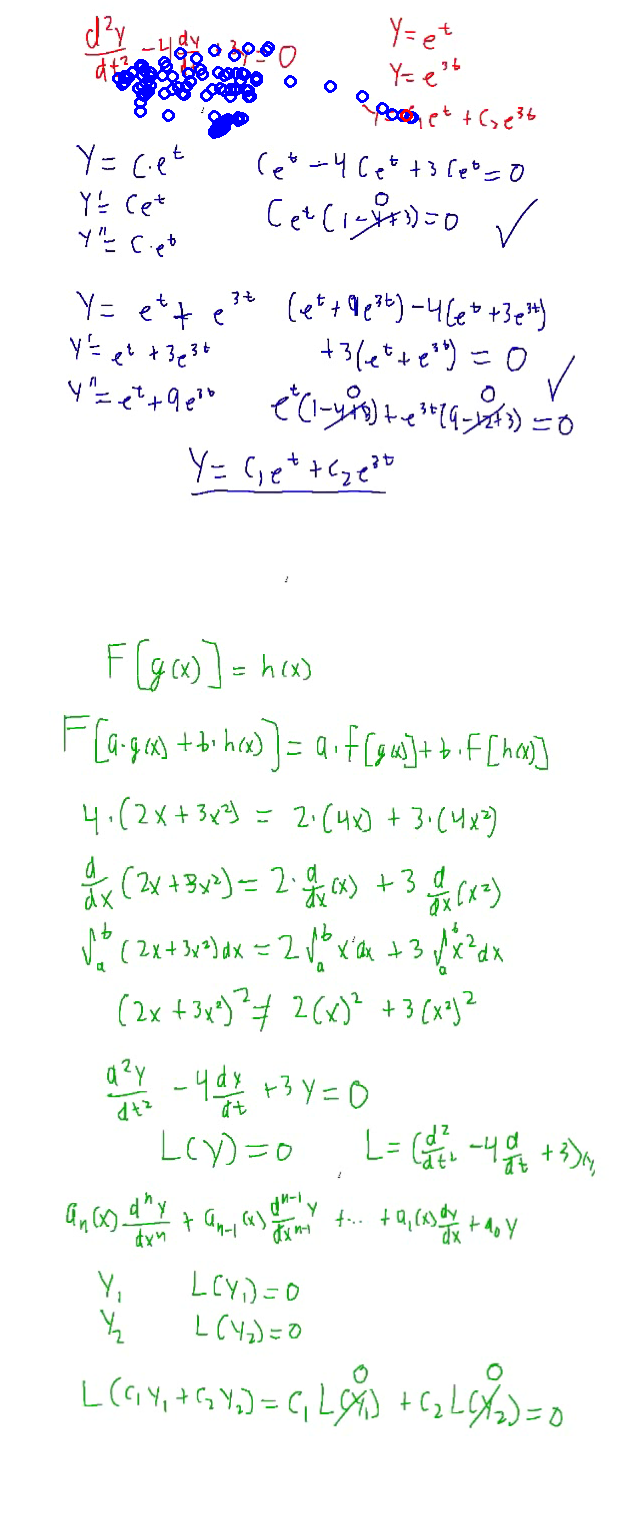 d²y/dt² - 4 dy/dt + 3y = 0
y = e^t
y = e^3t
y = c₁e^t + c₂e^3t
y = c·e^t
ce^t - 4ce^t + 3ce^t = 0
y' = ce^t
ce^t(1-4+3) = 0 ✓
0
y'' = c·e^t
y = e^t + e^3t
(e^t + 9e^3t) - 4(e^t + 3e^3t)
y' = e^t + 3e^3t
+3(e^t + e^3t) = 0 ✓
y'' = e^t + 9e^3t
0 0
e^t(1-4+3) + e^3t(9-12+3) = 0
y = c₁e^t + c₂e^3t
F[g(x)] = h(x)
F[a·g(x) + b·h(x)] = a·F[g(x)] + b·F[h(x)]
4·(2x + 3x²) = 2·(4x) + 3·(4x²)
d/dx (2x + 3x²) = 2·d/dx (x) + 3 d/dx (x²)
∫_a^b (2x + 3x²)dx = 2∫_a^b x dx + 3∫_a^b x²dx
(2x + 3x²)² ≠ 2(x)² + 3(x²)²
d²y/dt² - 4 dy/dt + 3y = 0
L(y) = 0
L = (d²/dt² - 4 d/dt + 3)y
aₙ(x) dⁿy/dxⁿ + aₙ₋₁(x) dⁿ⁻¹y/dxⁿ⁻¹ + ... + a₁(x) dy/dx + a₀y
y₁ L(y₁) = 0
y₂ L(y₂) = 0
0 0
L(c₁y₁ + c₂y₂) = c₁L(y₁) + c₂L(y₂) = 0